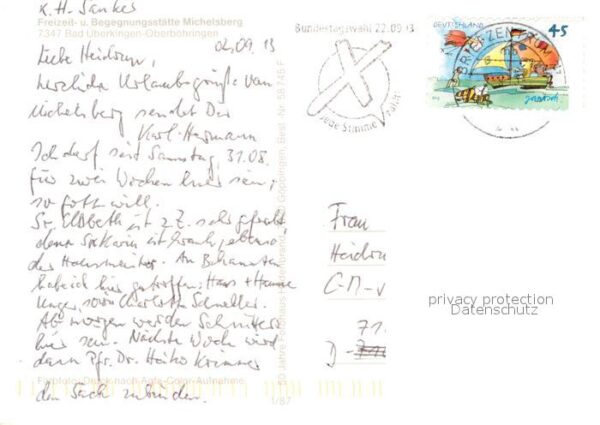 K. H.
Freizeit- u. Begegnungsstätte Michelsberg
7347 Bad Überkingen-Oberböhringen
02.09.13
Liebe Heidrun,
herzliche Urlaubsgrüße vom
Michelsberg sendet Dir
Karl-Hermann
Ich darf seit Samstag, 31.08.
für zwei Wochen hier sein,
so Gott will.
Sr. Elsbeth ist z. Z. sehr gefragt,
denn Sekretärin ist krank, ebenso
der Hausmeister. An Bekannten
habe ich hier getroffen: Hans + Hanne
Unger, sowie Charlotte Schneller.
Ab morgen werden
hier sein. Nächste Woche wird
dann Pfr. Dr. Heiko Krimmer
den Sack zubinden.
1/87
Bundestagswahl 22.09.13
Jede Stimme zählt!
DEUTSCHLAND
45
BRIEFZENTRUM
Frau
Heidrun
C-M-v
71
D-
privacy protection
Datenschutz